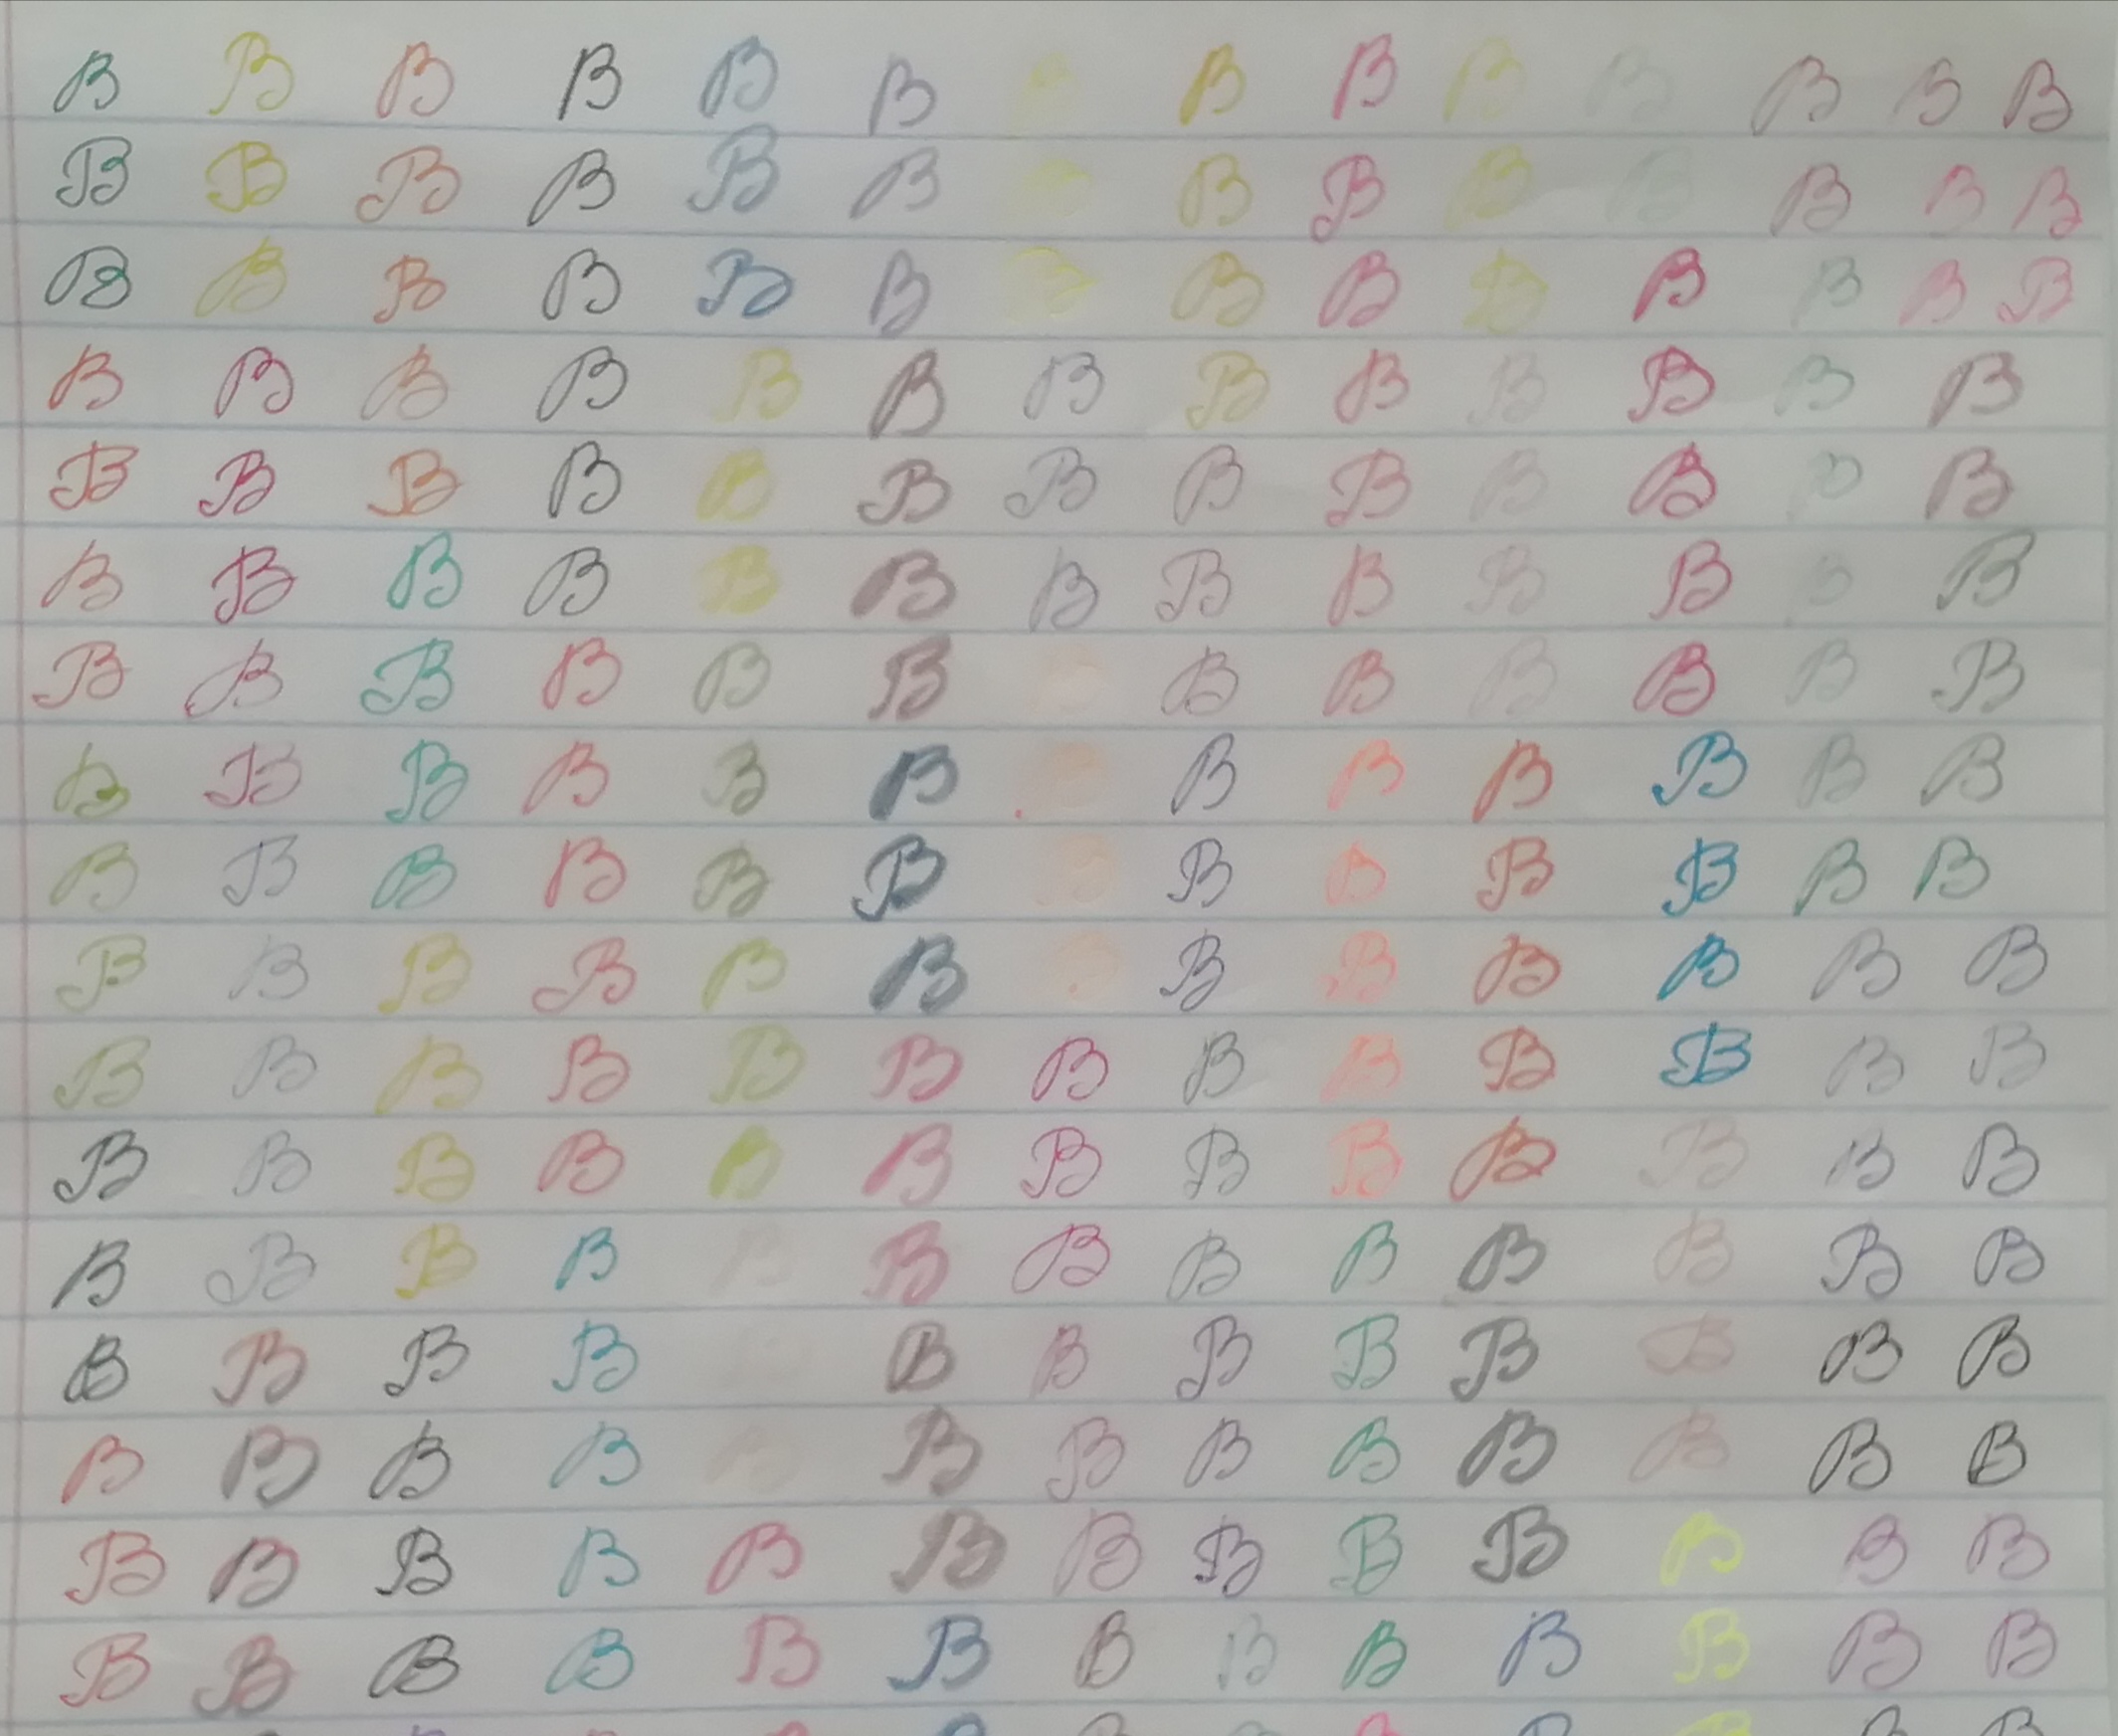 B B B B B B B B B B B B B B
B B B B B B B B B B B B B B
B B B B B B B B B B B B B B
B B B B B B B B B B B B B
B B B B B B B B B B B B B
B B B B B B B B B B B B B
B B B B B B B B B B B B B
B B B B B B B B B B B B B
B B B B B B B B B B B B B
B B B B B B B B B B B B B
B B B B B B B B B B B B B
B B B B B B B B B B B B B
B B B B B B B B B B B B B
B B B B B B B B B B B B
B B B B B B B B B B B B B
B B B B B B B B B B B B B
B B B B B B B B B B B B B